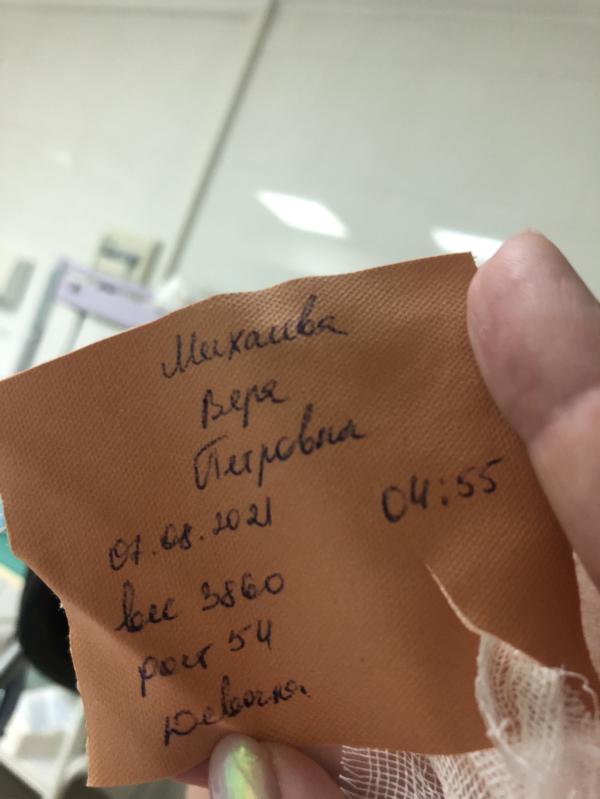 Михалева
Вера
Петровна
07.08.2021 04:55
вес 3860
рост 54
Девочка